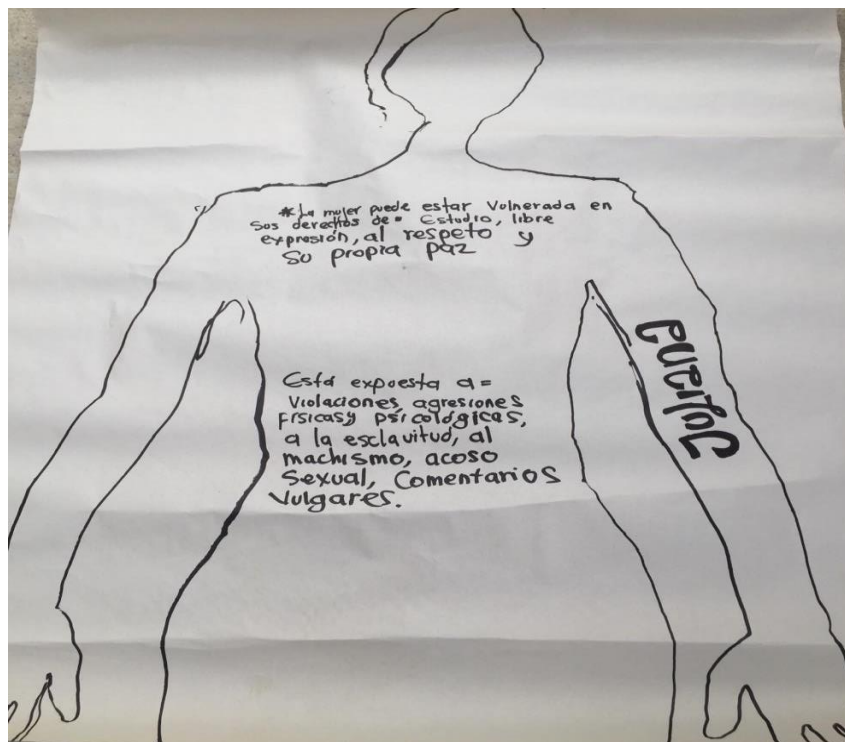 * La mujer puede estar Vulnerada en
Sus derechos de = Estudio, libre
expresión, al respeto y
Su propia paz
Está expuesta a =
Violaciones, agresiones
Físicas y psicológicas,
a la esclavitud, al
machismo, acoso
Sexual, Comentarios
Vulgares.
Juliana